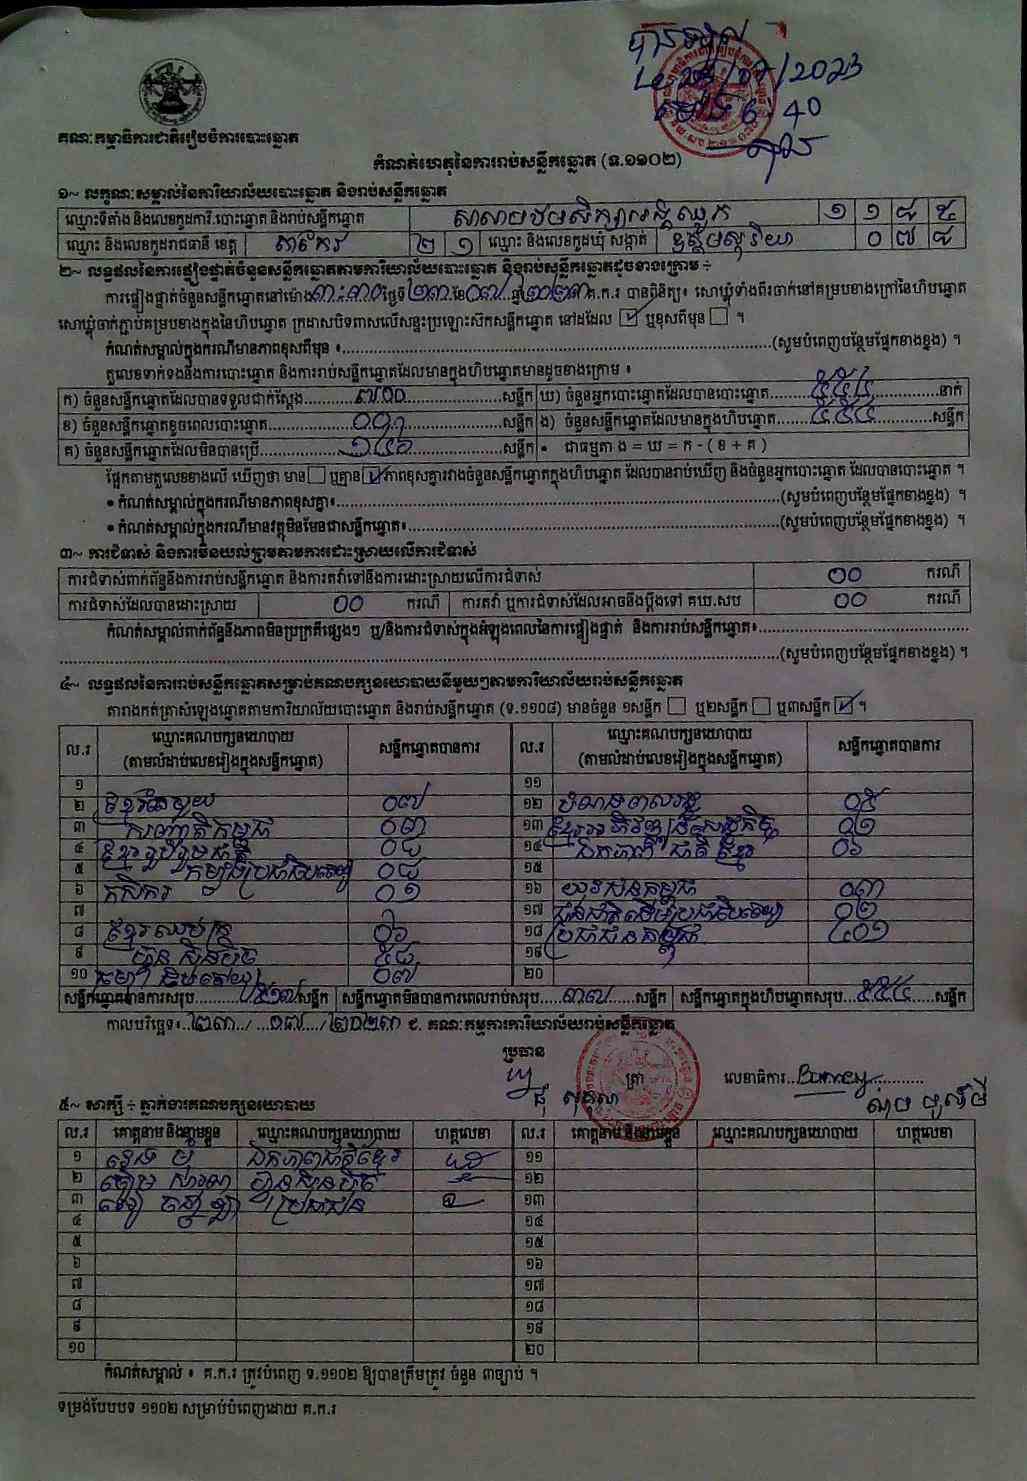 2023
6:40
គណៈកម្មាធិការជាតិរៀបចំការបោះឆ្នោត
កំណត់ហេតុនៃការរាប់សន្លឹកឆ្នោត (ទ.១១០២)
១~ លក្ខណៈសម្គាល់នៃការិយាល័យបោះឆ្នោត និងរាប់សន្លឹកឆ្នោត
ឈ្មោះទីតាំង និងលេខកូដការិ.បោះឆ្នោត និងរាប់សន្លឹកឆ្នោត ១ ១ ៨ ៥
ឈ្មោះ និងលេខកូដរាជធានី ខេត្ត តាកែវ ២ ១ ឈ្មោះ និងលេខកូដឃុំ សង្កាត់ ឧត្តមសុរិយា ០ ៧ ៨
២~ លទ្ធផលនៃការផ្ទៀងផ្ទាត់ចំនួនសន្លឹកឆ្នោតតាមការិយាល័យបោះឆ្នោត និងរាប់សន្លឹកឆ្នោតដូចខាងក្រោម ÷
ការផ្ទៀងផ្ទាត់ចំនួនសន្លឹកឆ្នោតនៅម៉ោង ៣:៣០ ថ្ងៃទី ២៣ ខែ ០៧ ឆ្នាំ ២០២៣ គ.ក.រ បានពិនិត្យ៖ សោឃ្លុំទាំងពីរចាក់នៅគម្របខាងក្រៅនៃហិបឆ្នោត
សោឃ្លុំចាក់ភ្ជាប់គម្របខាងក្នុងនៃហិបឆ្នោត ក្រដាសបិទពាសលើសន្ទះប្រឡោះស៊កសន្លឹកឆ្នោត នៅដដែល ☑ ឬខុសពីមុន ☐ ។
កំណត់សម្គាល់ក្នុងករណីមានភាពខុសពីមុន ៖ (សូមបំពេញបន្ថែមផ្នែកខាងខ្នង) ។
តួលេខទាក់ទងនឹងការបោះឆ្នោត និងការរាប់សន្លឹកឆ្នោតដែលមានក្នុងហិបឆ្នោតមានដូចខាងក្រោម ៖
ក) ចំនួនសន្លឹកឆ្នោតដែលបានទទួលជាក់ស្តែង ៧០០ សន្លឹក ឃ) ចំនួនអ្នកបោះឆ្នោតដែលបានបោះឆ្នោត ៥៥៤ នាក់
ខ) ចំនួនសន្លឹកឆ្នោតខូចពេលបោះឆ្នោត សន្លឹក ង) ចំនួនសន្លឹកឆ្នោតដែលមានក្នុងហិបឆ្នោត ៥៥៤ សន្លឹក
គ) ចំនួនសន្លឹកឆ្នោតដែលមិនបានប្រើ សន្លឹក • ជាធម្មតា ង = ឃ = ក - ( ខ + គ )
ផ្អែកតាមតួលេខខាងលើ ឃើញថា មាន ☐ ឬគ្មាន ☑ ភាពខុសគ្នារវាងចំនួនសន្លឹកឆ្នោតក្នុងហិបឆ្នោត ដែលបានរាប់ឃើញ និងចំនួនអ្នកបោះឆ្នោត ដែលបានបោះឆ្នោត ។
• កំណត់សម្គាល់ក្នុងករណីមានភាពខុសគ្នា៖ (សូមបំពេញបន្ថែមផ្នែកខាងខ្នង) ។
• កំណត់សម្គាល់ក្នុងករណីមានវត្ថុមិនមែនជាសន្លឹកឆ្នោត៖ (សូមបំពេញបន្ថែមផ្នែកខាងខ្នង) ។
៣~ ការជំទាស់ និងការមិនយល់ព្រមតាមការដោះស្រាយលើការជំទាស់
ការជំទាស់ពាក់ព័ន្ធនឹងការរាប់សន្លឹកឆ្នោត និងការតវ៉ាទៅនឹងការដោះស្រាយលើការជំទាស់ ០០ ករណី
ការជំទាស់ដែលបានដោះស្រាយ ០០ ករណី ការតវ៉ា ឬការជំទាស់ដែលអាចនឹងប្តឹងទៅ គឃ.សប ០០ ករណី
កំណត់សម្គាល់ពាក់ព័ន្ធនឹងភាពមិនប្រក្រតីផ្សេងៗ ឬ/និងការជំទាស់ក្នុងអំឡុងពេលនៃការផ្ទៀងផ្ទាត់ និងការរាប់សន្លឹកឆ្នោត៖
(សូមបំពេញបន្ថែមផ្នែកខាងខ្នង) ។
៤~ លទ្ធផលនៃការរាប់សន្លឹកឆ្នោតសម្រាប់គណបក្សនយោបាយនីមួយៗតាមការិយាល័យរាប់សន្លឹកឆ្នោត
តារាងកត់ត្រាសំឡេងឆ្នោតតាមការិយាល័យបោះឆ្នោត និងរាប់សន្លឹកឆ្នោត (ទ.១១០៨) មានចំនួន ១សន្លឹក ☐ ឬ២សន្លឹក ☐ ឬ៣សន្លឹក ☑ ។
ល.រ ឈ្មោះគណបក្សនយោបាយ (តាមលំដាប់លេខរៀងក្នុងសន្លឹកឆ្នោត) សន្លឹកឆ្នោតបានការ ល.រ ឈ្មោះគណបក្សនយោបាយ (តាមលំដាប់លេខរៀងក្នុងសន្លឹកឆ្នោត) សន្លឹកឆ្នោតបានការ
១ ១១
២ ខ្មែរតែមួយ ០៧ ១២ ០៥
៣ សញ្ជាតិកម្ពុជា ០៣ ១៣ ខ្មែរអភិវឌ្ឍន៍សេដ្ឋកិច្ច ០១
៤ ខ្មែររួបរួមជាតិ ០៤ ១៤ ឯកភាពជាតិខ្មែរ ០៦
៥ កម្លាំងប្រជាធិបតេយ្យ ០៨ ១៥
៦ កសិករ ០១ ១៦ យុវជនកម្ពុជា ០៣
៧ ១៧ ជនជាតិដើមប្រជាធិបតេយ្យ ០២
៨ ខ្មែរឈប់ក្រ ០៦ ១៨ ប្រជាជនកម្ពុជា ៤០១
៩ ហ៊្វុនស៊ិនប៉ិច ៥៨ ១៩
១០ ០៧ ២០
សន្លឹកឆ្នោតបានការសរុប ៥១៧ សន្លឹក សន្លឹកឆ្នោតមិនបានការពេលរាប់សរុប ៣៧ សន្លឹក សន្លឹកឆ្នោតក្នុងហិបឆ្នោតសរុប ៥៥៤ សន្លឹក
កាលបរិច្ឆេទ៖ ២៣ / ០៧ / ២០២៣ ជ. គណៈកម្មការការិយាល័យរាប់សន្លឹកឆ្នោត
ប្រធាន
ត្រា
លេខាធិការ
៥~ សាក្សី ÷ ភ្នាក់ងារគណបក្សនយោបាយ
ល.រ គោត្តនាម និងនាមខ្លួន ឈ្មោះគណបក្សនយោបាយ ហត្ថលេខា ល.រ គោត្តនាម និងនាមខ្លួន ឈ្មោះគណបក្សនយោបាយ ហត្ថលេខា
១ ឯកភាពជាតិខ្មែរ ១១
២ ហ៊្វុនស៊ិនប៉ិច ១២
៣ ប្រជាជន ១៣
៤ ១៤
៥ ១៥
៦ ១៦
៧ ១៧
៨ ១៨
៩ ១៩
១០ ២០
កំណត់សម្គាល់ ៖ គ.ក.រ ត្រូវបំពេញ ទ.១១០២ ឱ្យបានត្រឹមត្រូវ ចំនួន ៣ច្បាប់ ។
ទម្រង់បែបបទ ១១០២ សម្រាប់បំពេញដោយ គ.ក.រ